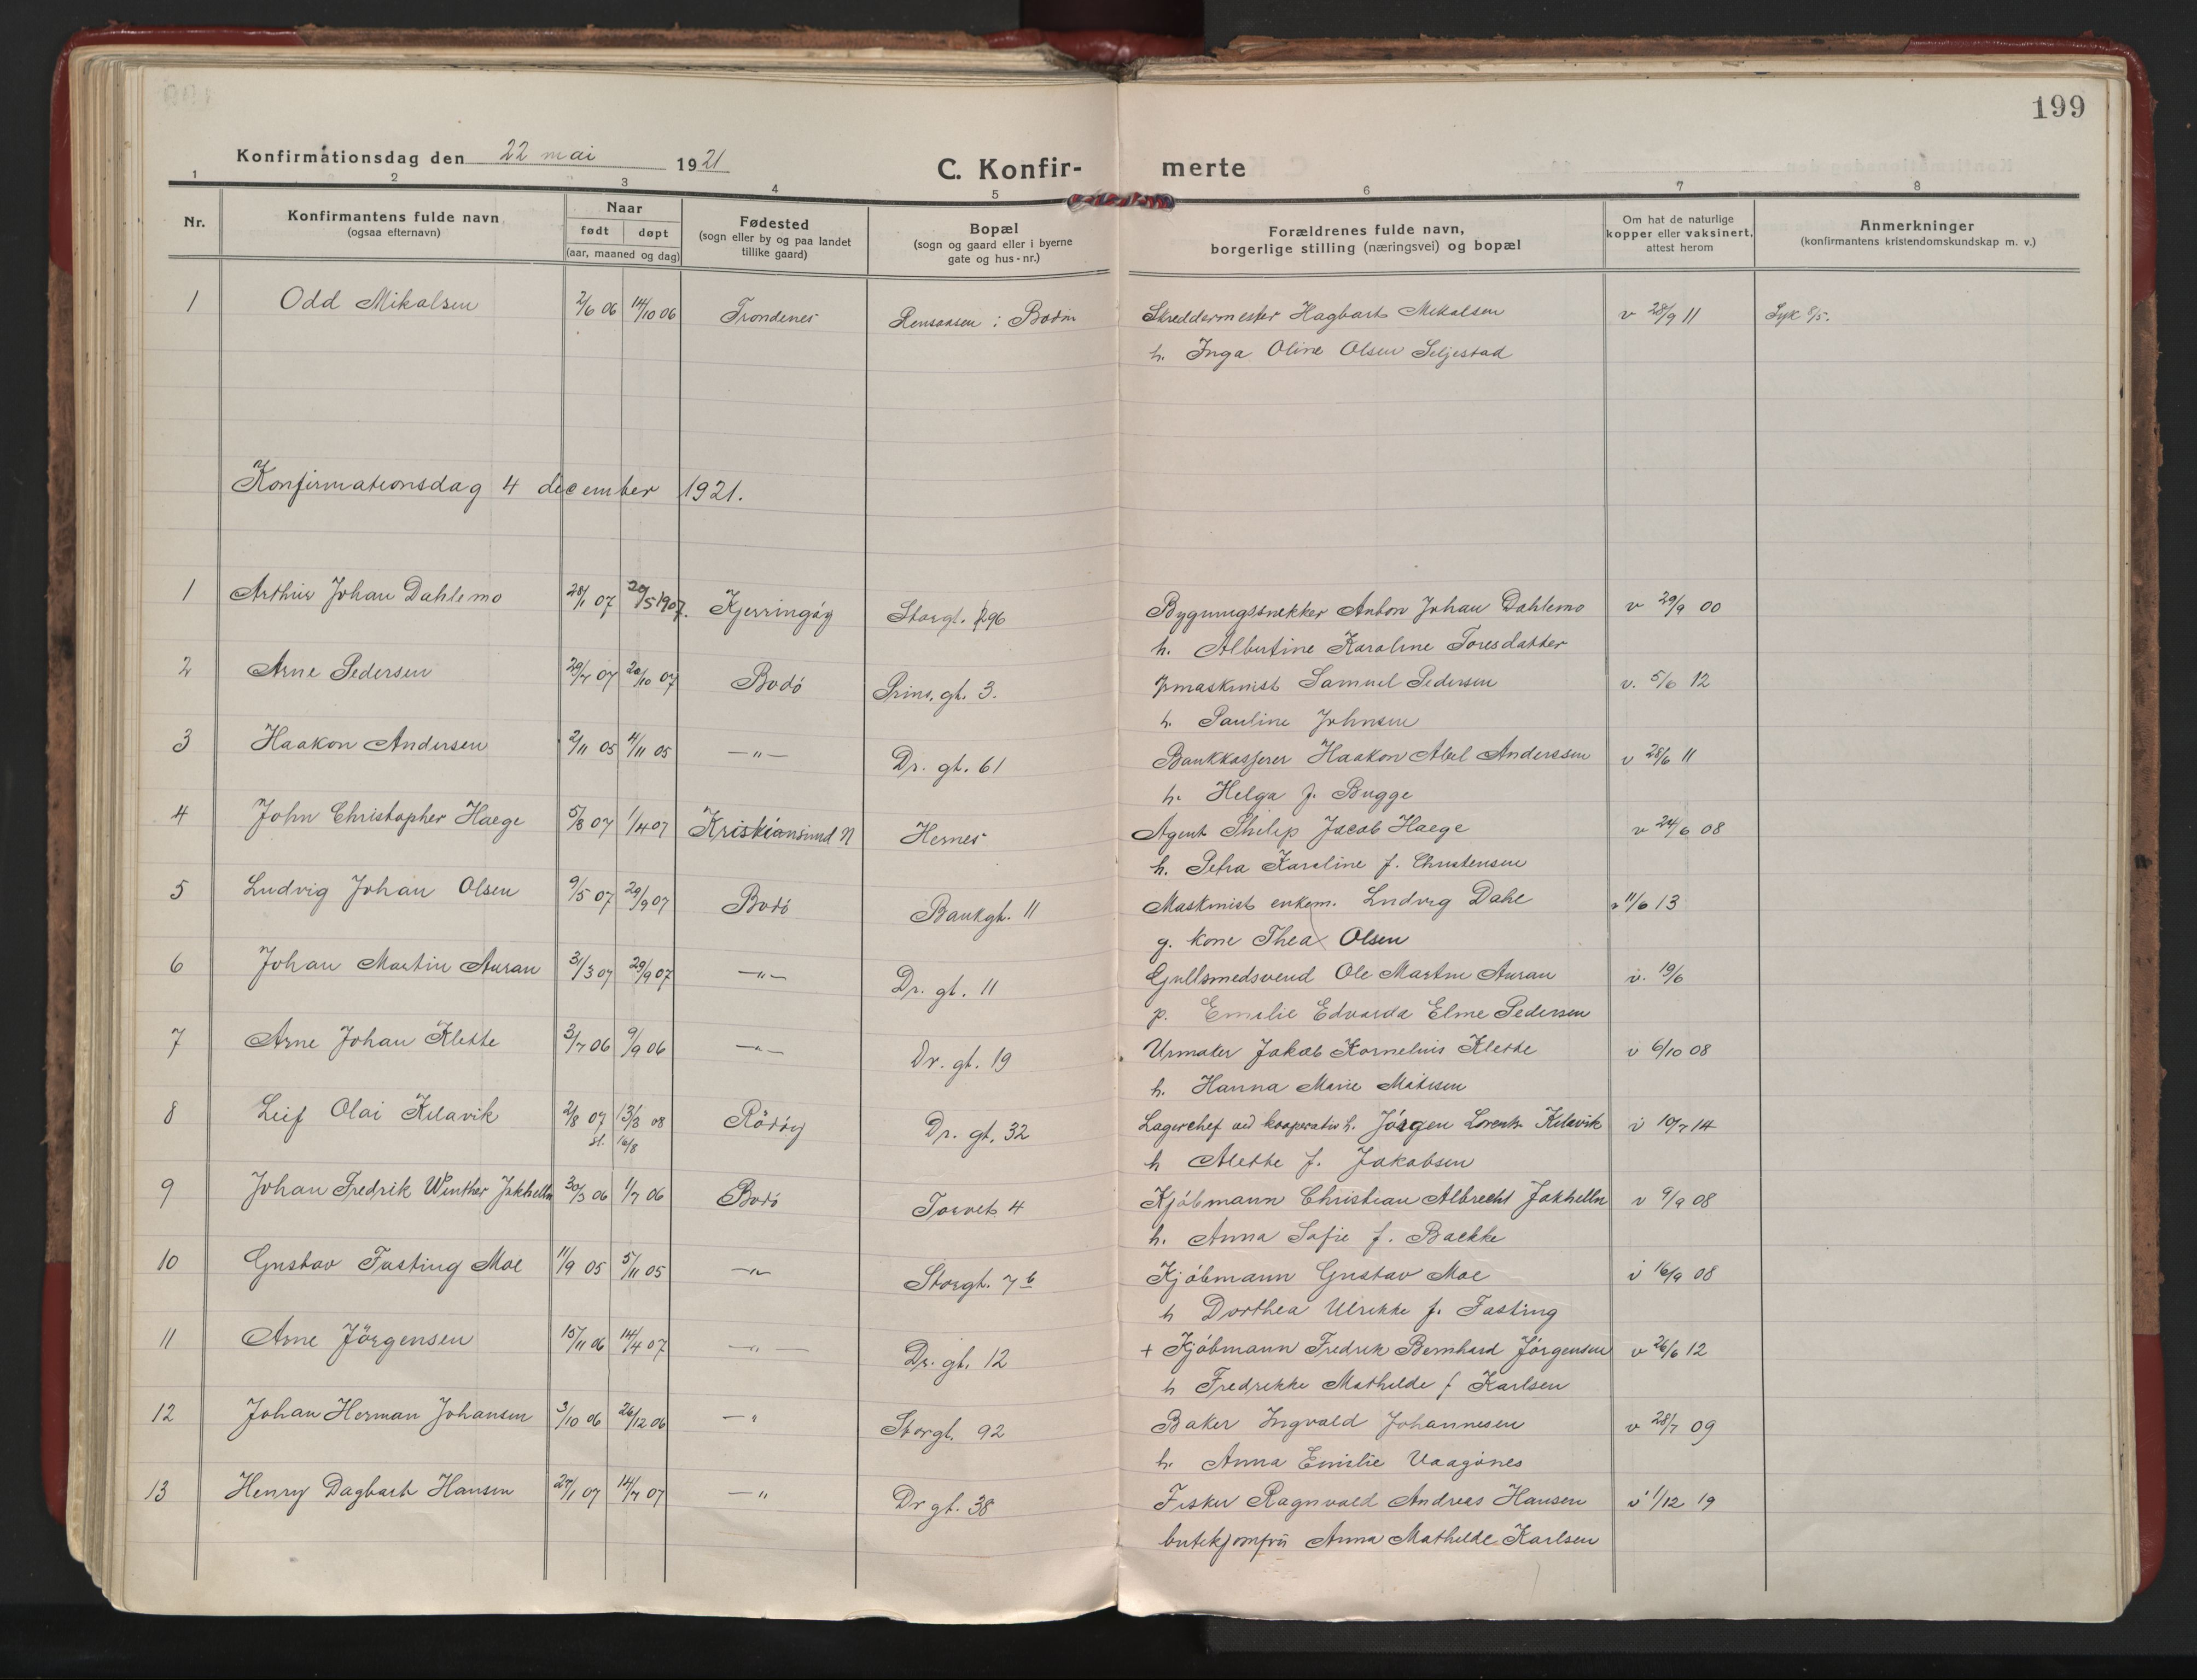 199
Konfirmationsdag den 22 mai 1921
C. Konfir- merte
1 2 3 4 5 6 7 8
Nr. Konfirmantens fulde navn (ogsaa efternavn) Naar født døpt (aar, maaned og dag) Fødested (sogn eller by og paa landet tillike gaard) Bopæl (sogn og gaard eller i byerne gate og hus-nr.) Forældrenes fulde navn, borgerlige stilling (næringsvei) og bopæl Om hat de naturlige kopper eller vaksinert, attest herom Anmerkninger (konfirmantens kristendomskundskap m. v.)
1 Odd Mikalsen 2/6 06 14/10 06 Trondenes Rensaasen i Bodin Skreddermester Hagbart Mikalsen v 28/9 11 Syk 8/5.
h. Inga Oline Olsen Seljestad
Konfirmationsdag 4 december 1921.
1 Arthur Johan Dahlemo 28/1 07 20/5 1907. Kjerringøy Storgt. 96 Bygningssnekker Anton Johan Dahlemo v 29/9 00
h. Albertine Karoline Toresdatter
2 Arne Pedersen 29/7 07 20/10 07 Bodö Prins. gt. 3. Samuel Pedersen v. 5/6 12
h. Pauline Johnsen
3 Haakon Andersen 2/11 05 4/11 05 —"— Dr. gt. 61 Bankkasserer Haakon Abel Anderssen v 28/6 11
h. Helga f. Bugge
4 John Christopher Haege 5/3 07 1/4 07 Kristiansund N Hernes Agent Philip Jacob Haege v 24/6 08
h. Petra Karoline f. Christensen
5 Ludvig Johan Olsen 9/5 07 29/9 07 Bodö Bankgt. 11 Maskinist enkem. Ludvig Dahl v 11/6 13
g. kone Thea Olsen
6 Johan Martin Auran 31/3 07 29/9 07 —"— Dr. gt. 11 Gullsmedsvend Ole Martin Auran v. 19/6
p. Emelie Edvarda Eline Pedersen
7 Arne Johan Klette 3/7 06 9/9 06 —"— Dr. gt. 19 Urmaker Jakob Kornelius Klette v 6/10 08
h. Hanna Marie Matisen
8 Leif Olai Kilavik 2/8 07 13/3 08 Rödöy Dr. gt. 32 Lagerchef ved kooperativ h. Jörgen Lorents Kilavik v 10/7 14
st. 16/8 h Alette f. Jakobsen
9 Johan Fredrik Winther Jakhelln 30/3 06 1/7 06 Bodö Torvet 4 Kjöbmann Christian Albrecht Jakhelln v 9/9 08
h. Anna Sofie f. Baekke
10 Gustav Fasting Moe 11/9 05 5/11 05 —"— Storgt. 7 b Kjöbmann Gustav Moe v 16/9 08
h Dorthea Ulrikke f. Fasting
11 Arne Jörgensen 15/11 06 14/4 07 —"— Dr. gt. 12 + Kjöbmann Fredrik Bernhard Jörgensen v 26/6 12
h Fredrikke Mathilde f Karlsen
12 Johan Herman Johansen 3/10 06 26/12 06 —" Storgt. 92 Baker Ingvald Johannesen v 28/7 09
h. Anna Emilie Vaagönes
13 Henry Dagbart Hansen 27/1 07 14/7 07 —" Dr gt. 38 Fisker Ragnvald Andreas Hansen v 1/12 19
butikjomfru Anna Mathilde Karlsen